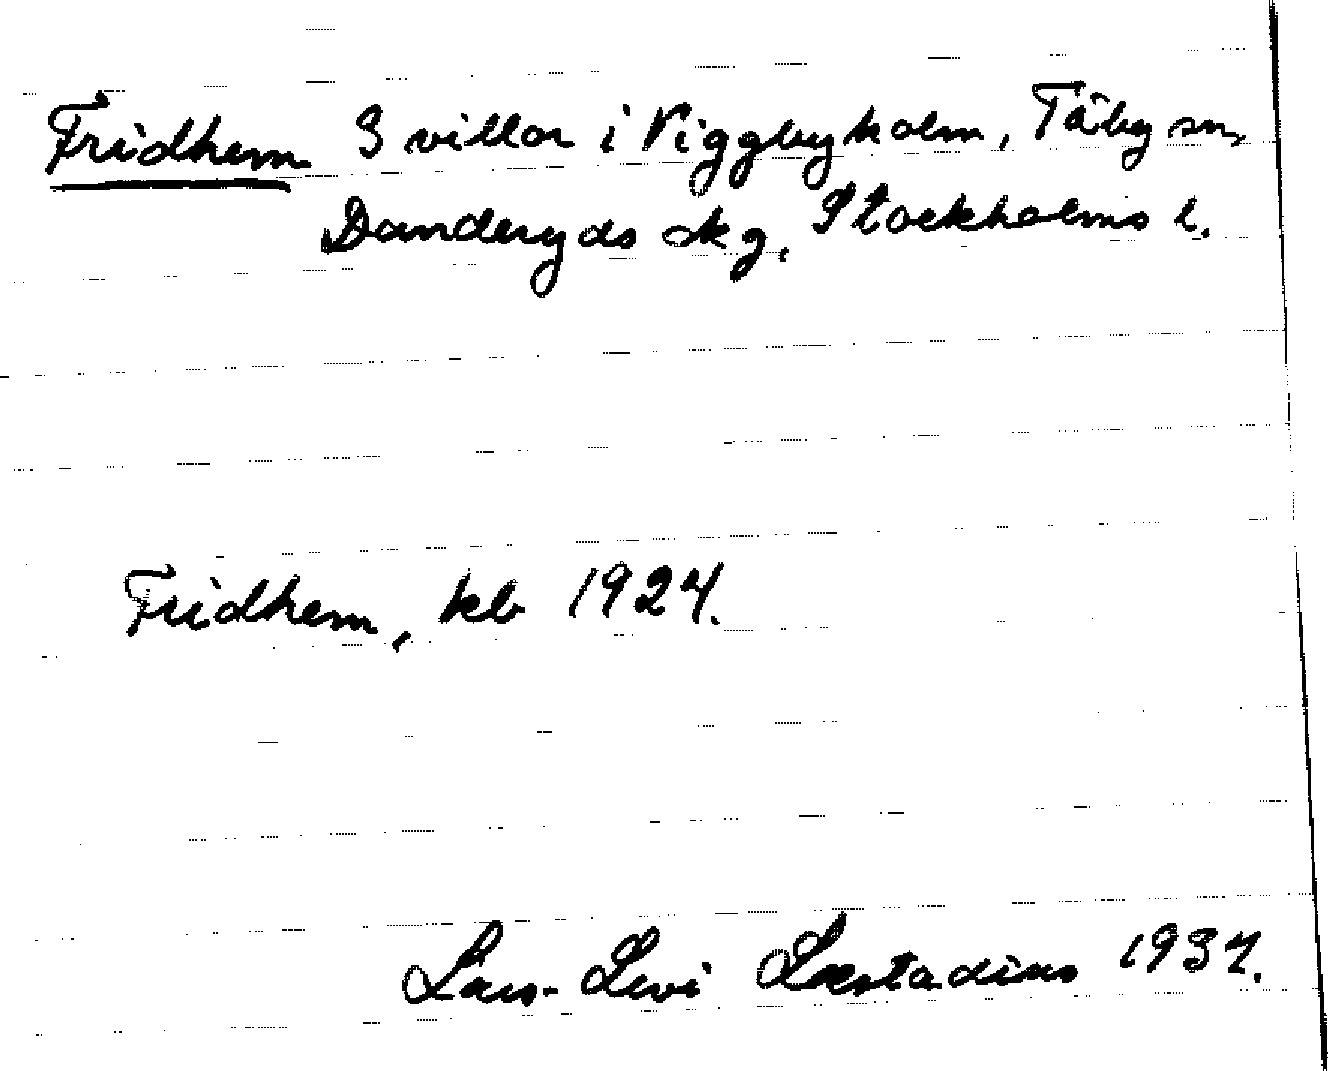 Fridhem 3 villor i Viggbyholm, Täby sn,
Danderyds skg, Stockholms l.
Fridhem, kb 1924.
Lars-Levi Læstadius 1937.